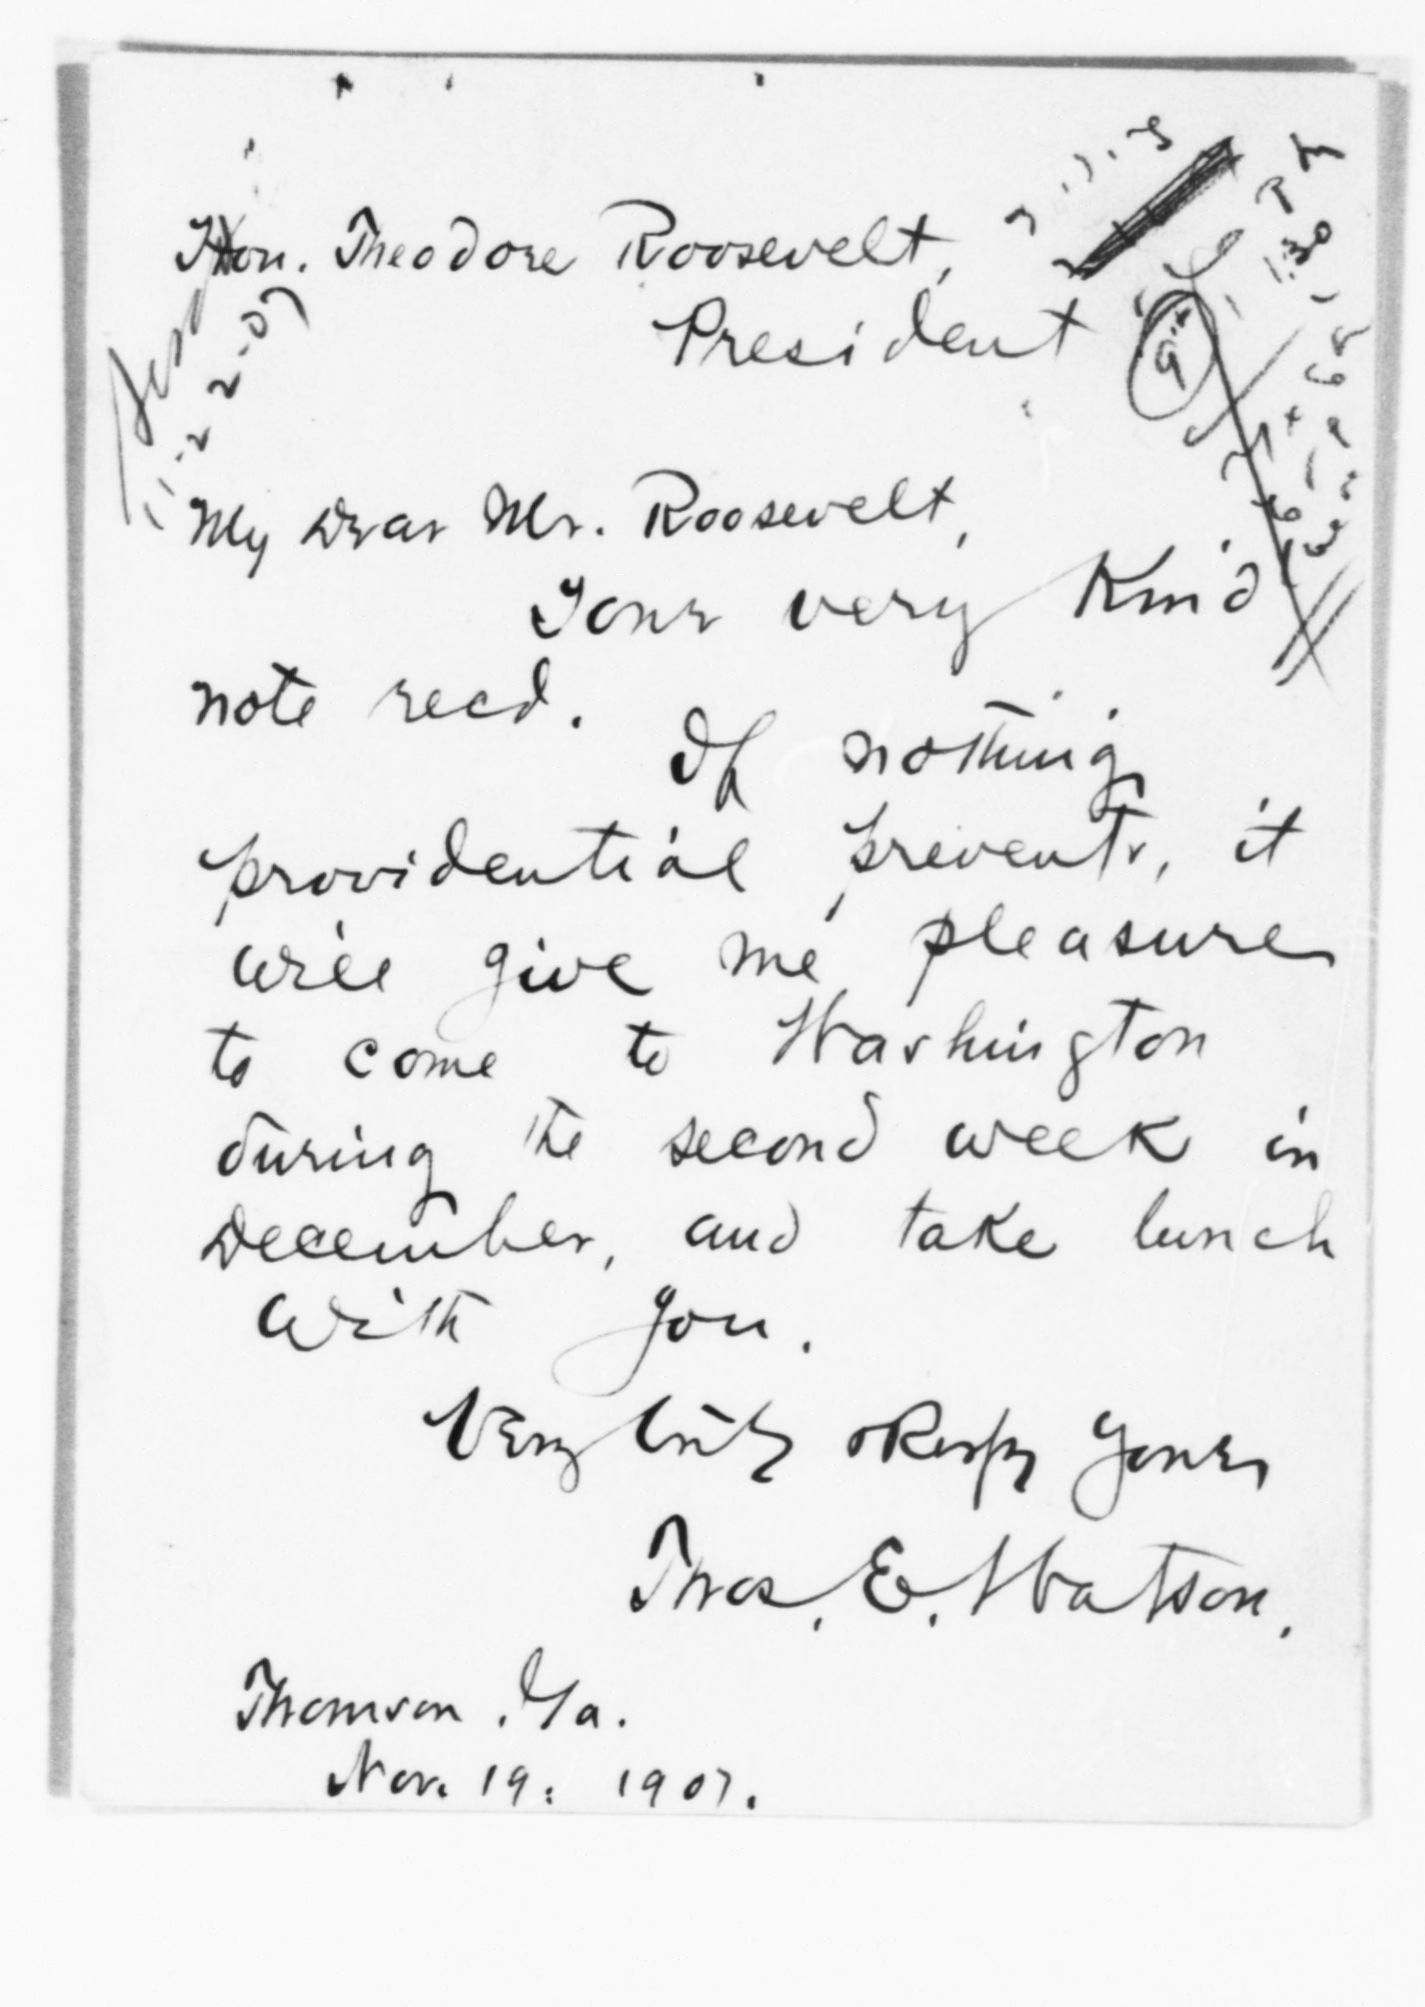 Hon. Theodore Roosevelt,
President
11-22-07
1:30 P M
My Dear Mr. Roosevelt,
Your very kind
note recd. If nothing
providential prevents, it
will give me pleasure
to come to Washington
during the second week in
December, and take lunch
with you.
Very truly & Respy Yours
Thos. E. Watson.
Thomson, Ga.
Nov. 19. 1907.